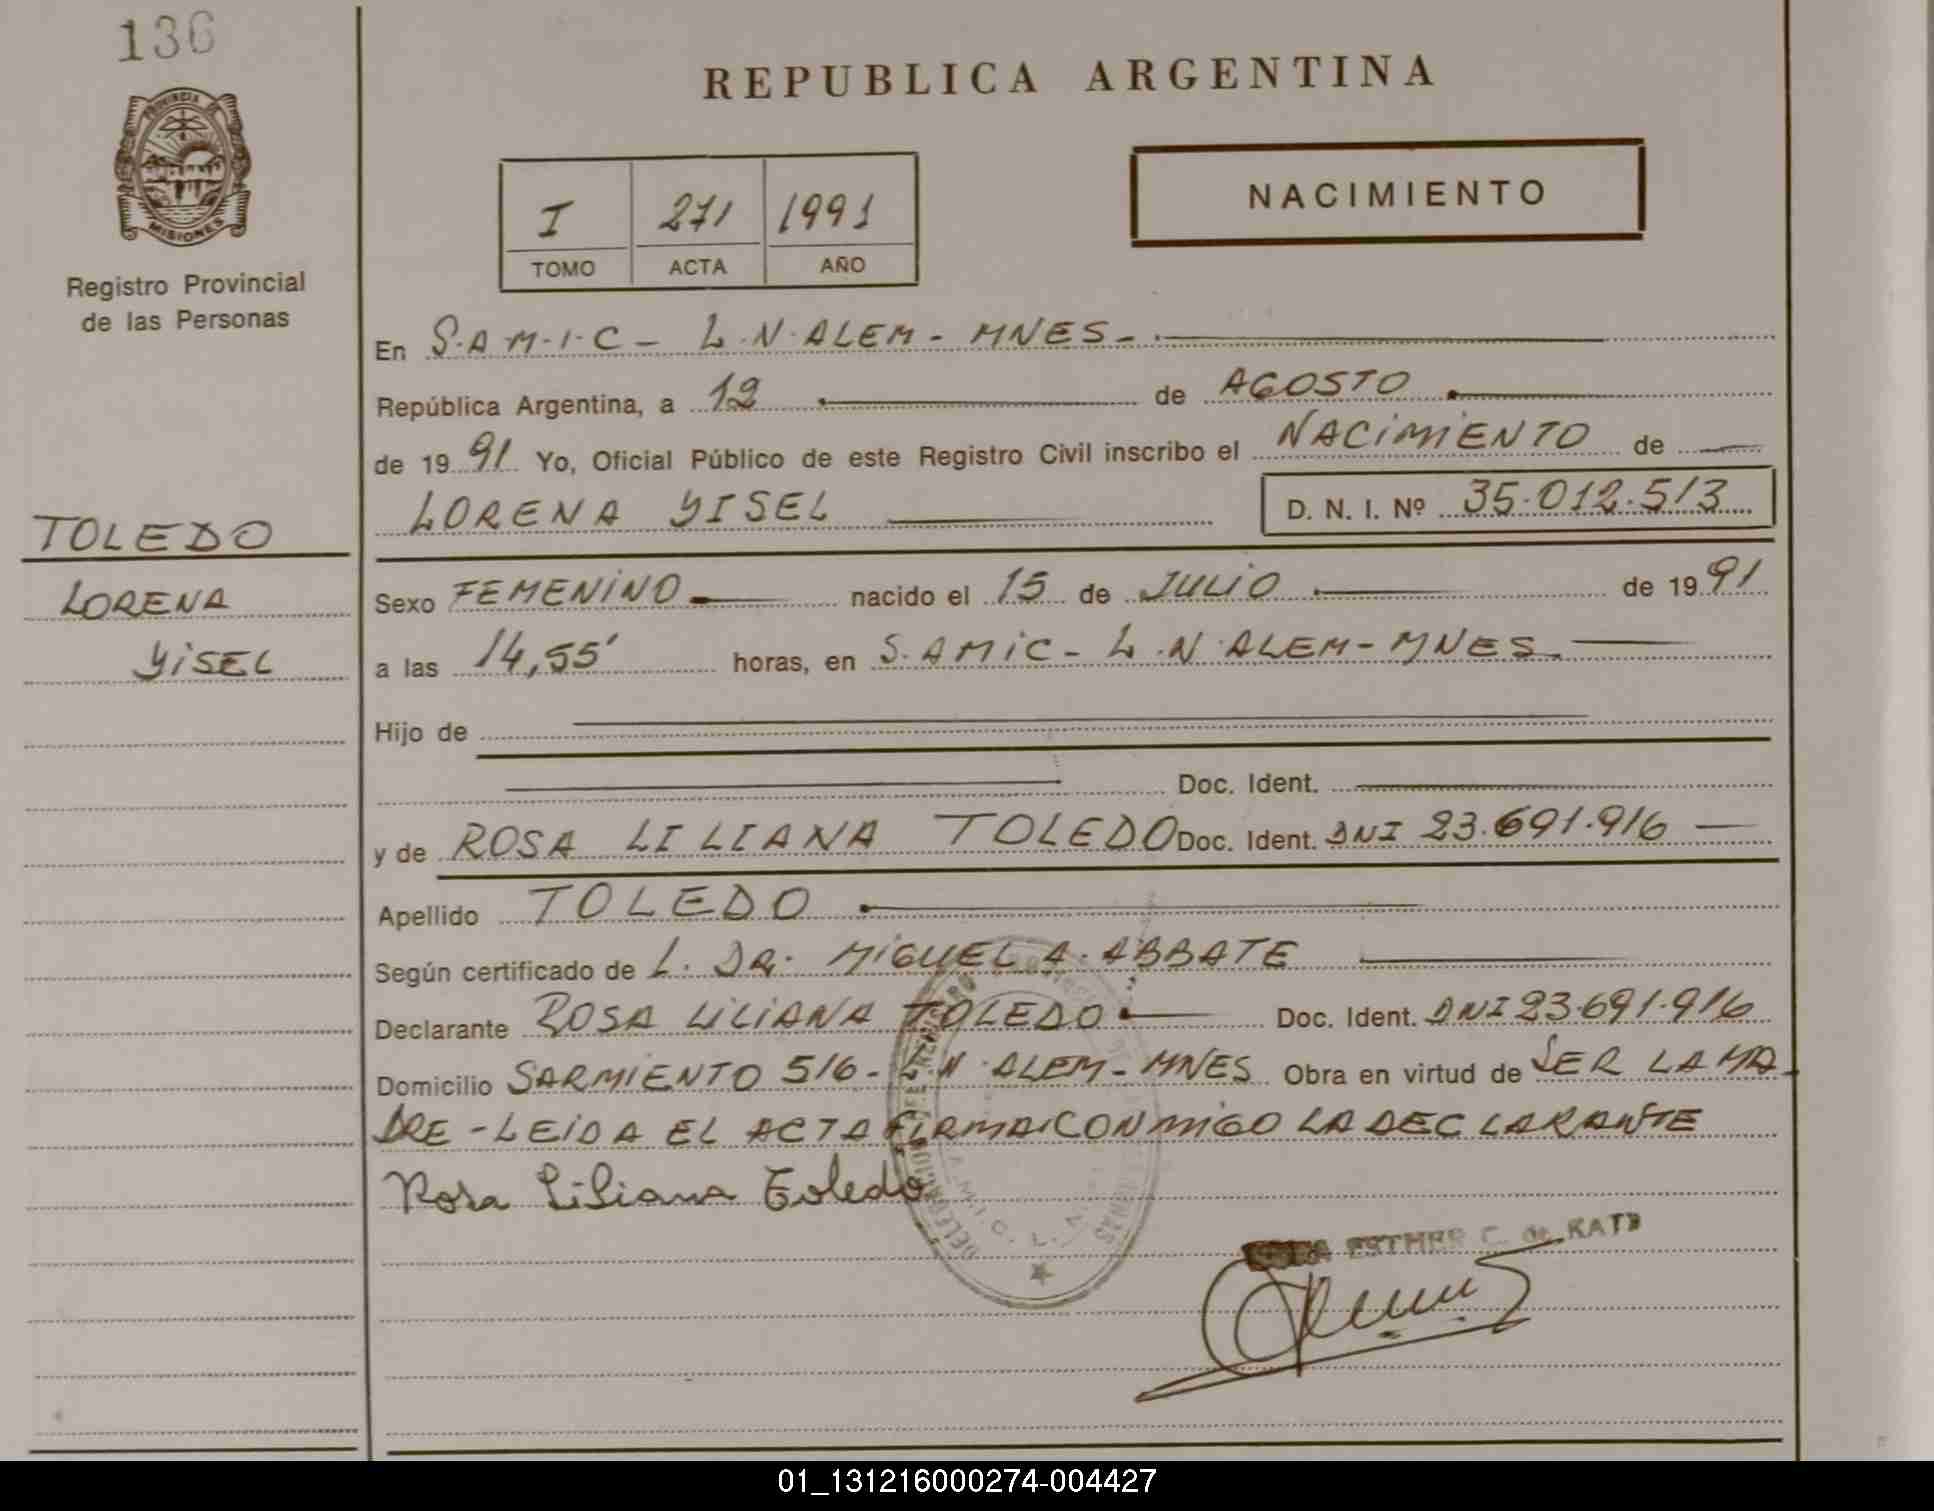 136
REPUBLICA ARGENTINA
PROVINCIA DE
MISIONES
Registro Provincial
de las Personas
I 271 1991
TOMO ACTA AÑO
NACIMIENTO
En S.A.M.I.C - L.N. ALEM - MNES -.
República Argentina, a 12 de AGOSTO
de 1991 Yo, Oficial Público de este Registro Civil inscribo el NACIMIENTO de
LORENA YISEL D. N. I. Nº 35.012.513
TOLEDO
LORENA
YISEL
Sexo FEMENINO nacido el 15 de JULIO de 1991
a las 14,55' horas, en S.AMIC - L.N. ALEM - MNES.
Hijo de
Doc. Ident.
y de ROSA LILIANA TOLEDO Doc. Ident. DNI 23.691.916
Apellido TOLEDO
Según certificado de L. DR. MIGUEL A. ABBATE
Declarante ROSA LILIANA TOLEDO Doc. Ident. DNI 23.691.916
Domicilio SARMIENTO 516 - L.N. ALEM - MNES Obra en virtud de SER LA MA
DRE - LEIDA EL ACTA FIRMA CONMIGO LA DECLARANTE
Rosa Liliana Toledo
ESTHER C. de KATZ
01_131216000274-004427